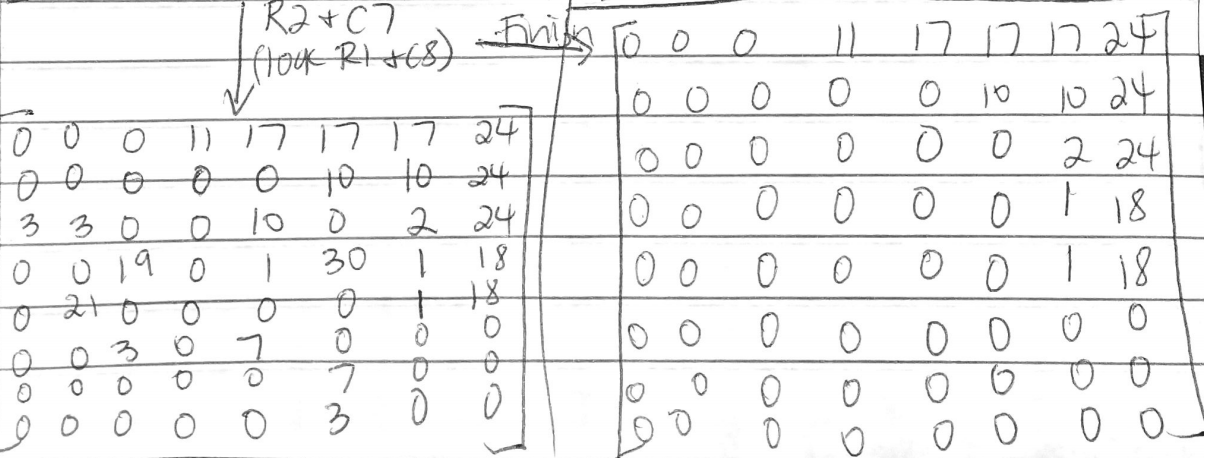 R2 + C7
(lock R1 + C8)
Finish
0 0 0 11 17 17 17 24
0 0 0 0 0 10 10 24
3 3 0 0 10 0 2 24
0 0 19 0 1 30 1 18
0 21 0 0 0 0 1 18
0 0 3 0 7 0 0 0
0 0 0 0 0 7 0 0
0 0 0 0 0 3 0 0
0 0 0 11 17 17 17 24
0 0 0 0 0 10 10 24
0 0 0 0 0 0 2 24
0 0 0 0 0 0 1 18
0 0 0 0 0 0 1 18
0 0 0 0 0 0 0 0
0 0 0 0 0 0 0 0
0 0 0 0 0 0 0 0